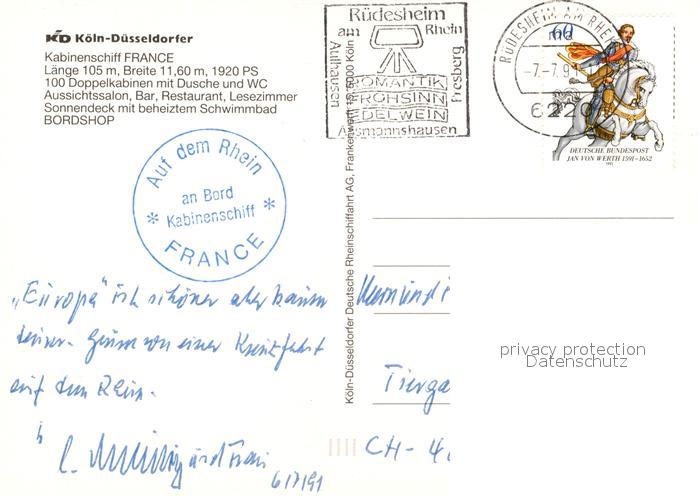 KD Köln-Düsseldorfer
Kabinenschiff FRANCE
Länge 105 m, Breite 11,60 m, 1920 PS
100 Doppelkabinen mit Dusche und WC
Aussichtssalon, Bar, Restaurant, Lesezimmer
Sonnendeck mit beheiztem Schwimmbad
BORDSHOP
Auf dem Rhein
* an Bord *
Kabinenschiff
FRANCE
„Europa" ist schöner aber kaum
Gruss von einer Kreuzfahrt
auf dem Rhein.
und Frau
6/7/91
Köln-Düsseldorfer Deutsche Rheinschiffahrt AG, Frankenwerft 15, 5000 Köln
Rüdesheim
am Rhein
Aulhausen
Presberg
ROMANTIK
FROHSINN
EDELWEIN
Assmannshausen
RÜDESHEIM AM RHEIN
md
-7.-7.9
622
60
DEUTSCHE BUNDESPOST
JAN VON WERTH 1591-1652
1991
Tierga
CH- 4
privacy protection
Datenschutz